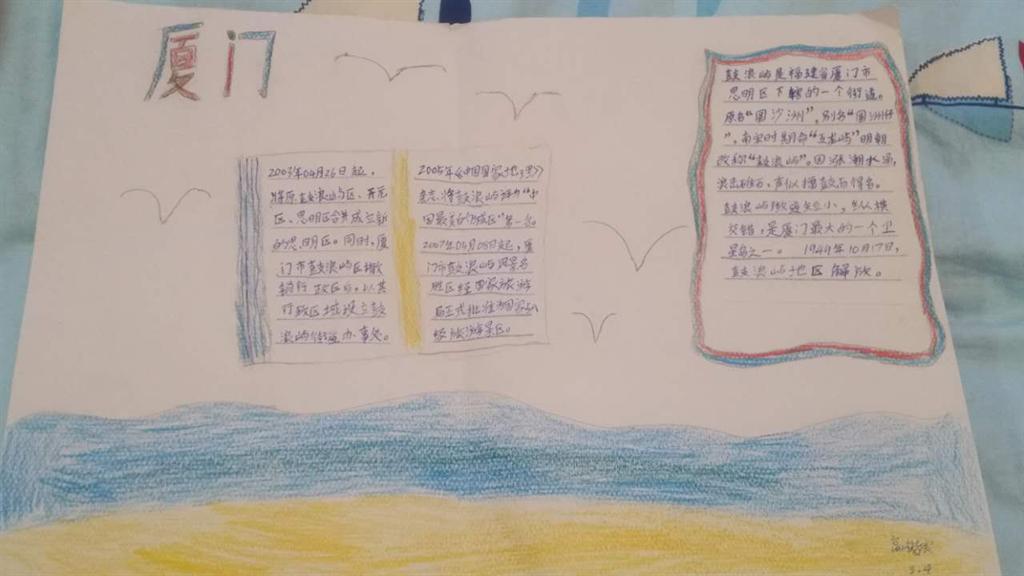 厦门
2003年04月26日起，
将原鼓浪屿区、开元
区、思明区合并成立新
的思明区。同时，厦
门市鼓浪屿区撤
销行政区后，以其
行政区域设立鼓
浪屿街道办事处。
2005年《中国国家地理》
杂志将鼓浪屿评为“中
国最美的城区”第一名
2007年05月08日起，厦
门市鼓浪屿风景名
胜区经国家旅游
局正式批准为国家5A
级旅游景区。
鼓浪屿是福建省厦门市
思明区下辖的一个街道。
原名“圆沙洲”，别名“圆洲仔
”，南宋时期命“五龙屿”明朝
改称“鼓浪屿”。因涨潮水涌，
浪击礁石，声似擂鼓而得名。
鼓浪屿街道短小，纵横
交错，是厦门最大的一个卫
星岛之一。1949年10月17日，
鼓浪屿地区解放。
3.4